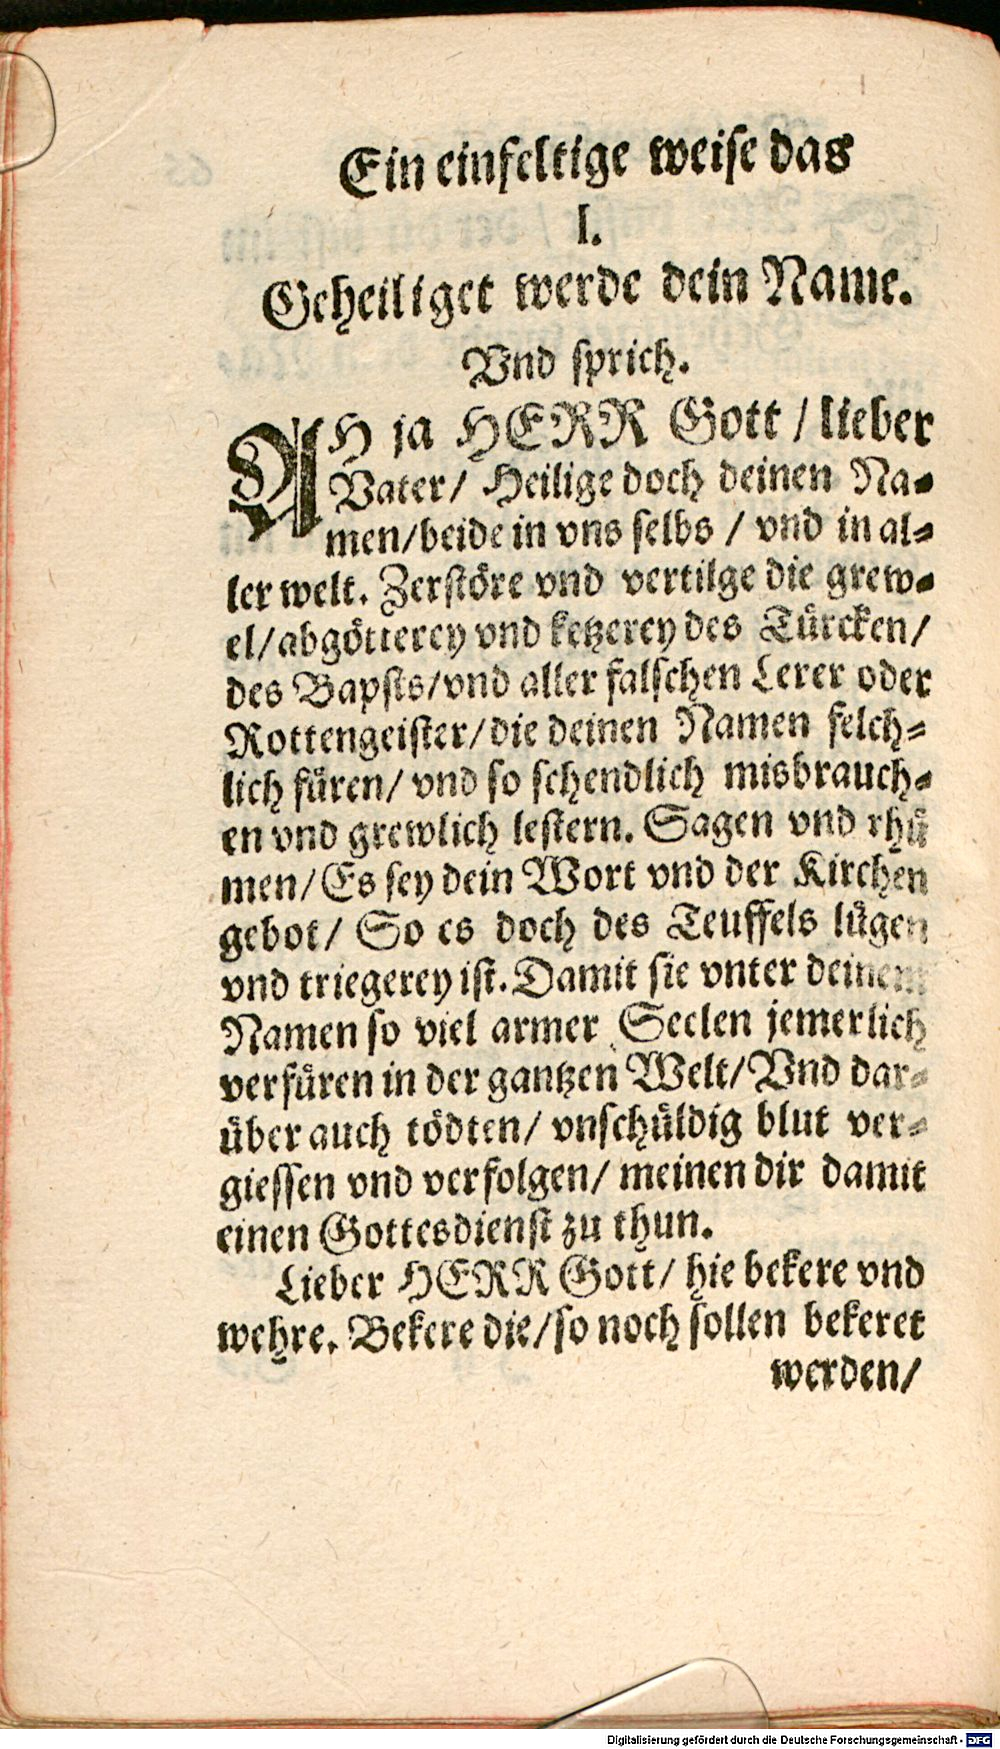 Ein einfeltige weise das
I.
Geheiliget werde dein Name.
Vnd sprich.
AH ja HERR Gott / lieber
Vater/ Heilige doch deinen Na-
men/beide in vns selbs / vnd in al-
ler welt. Zerstöre vnd vertilge die grew-
el/abgötterey vnd ketzerey des Türcken/
des Bapsts/vnd aller falschen Lerer oder
Rottengeister/die deinen Namen felch-
lich füren/ vnd so schendlich misbrauch-
en vnd grewlich lestern. Sagen vnd rhü
men/Es sey dein Wort vnd der Kirchen
gebot/ So es doch des Teuffels lügen
vnd triegerey ist. Damit sie vnter deinem
Namen so viel armer Seelen jemerlich
verfüren in der gantzen Welt/Vnd dar-
über auch tödten/ vnschüldig blut ver-
giessen vnd verfolgen/ meinen dir damit
einen Gottesdienst zu thun.
Lieber HERR Gott/ hie bekere vnd
wehre. Bekere die/so noch sollen bekeret
werden/
Digitalisierung gefördert durch die Deutsche Forschungsgemeinschaft - DFG